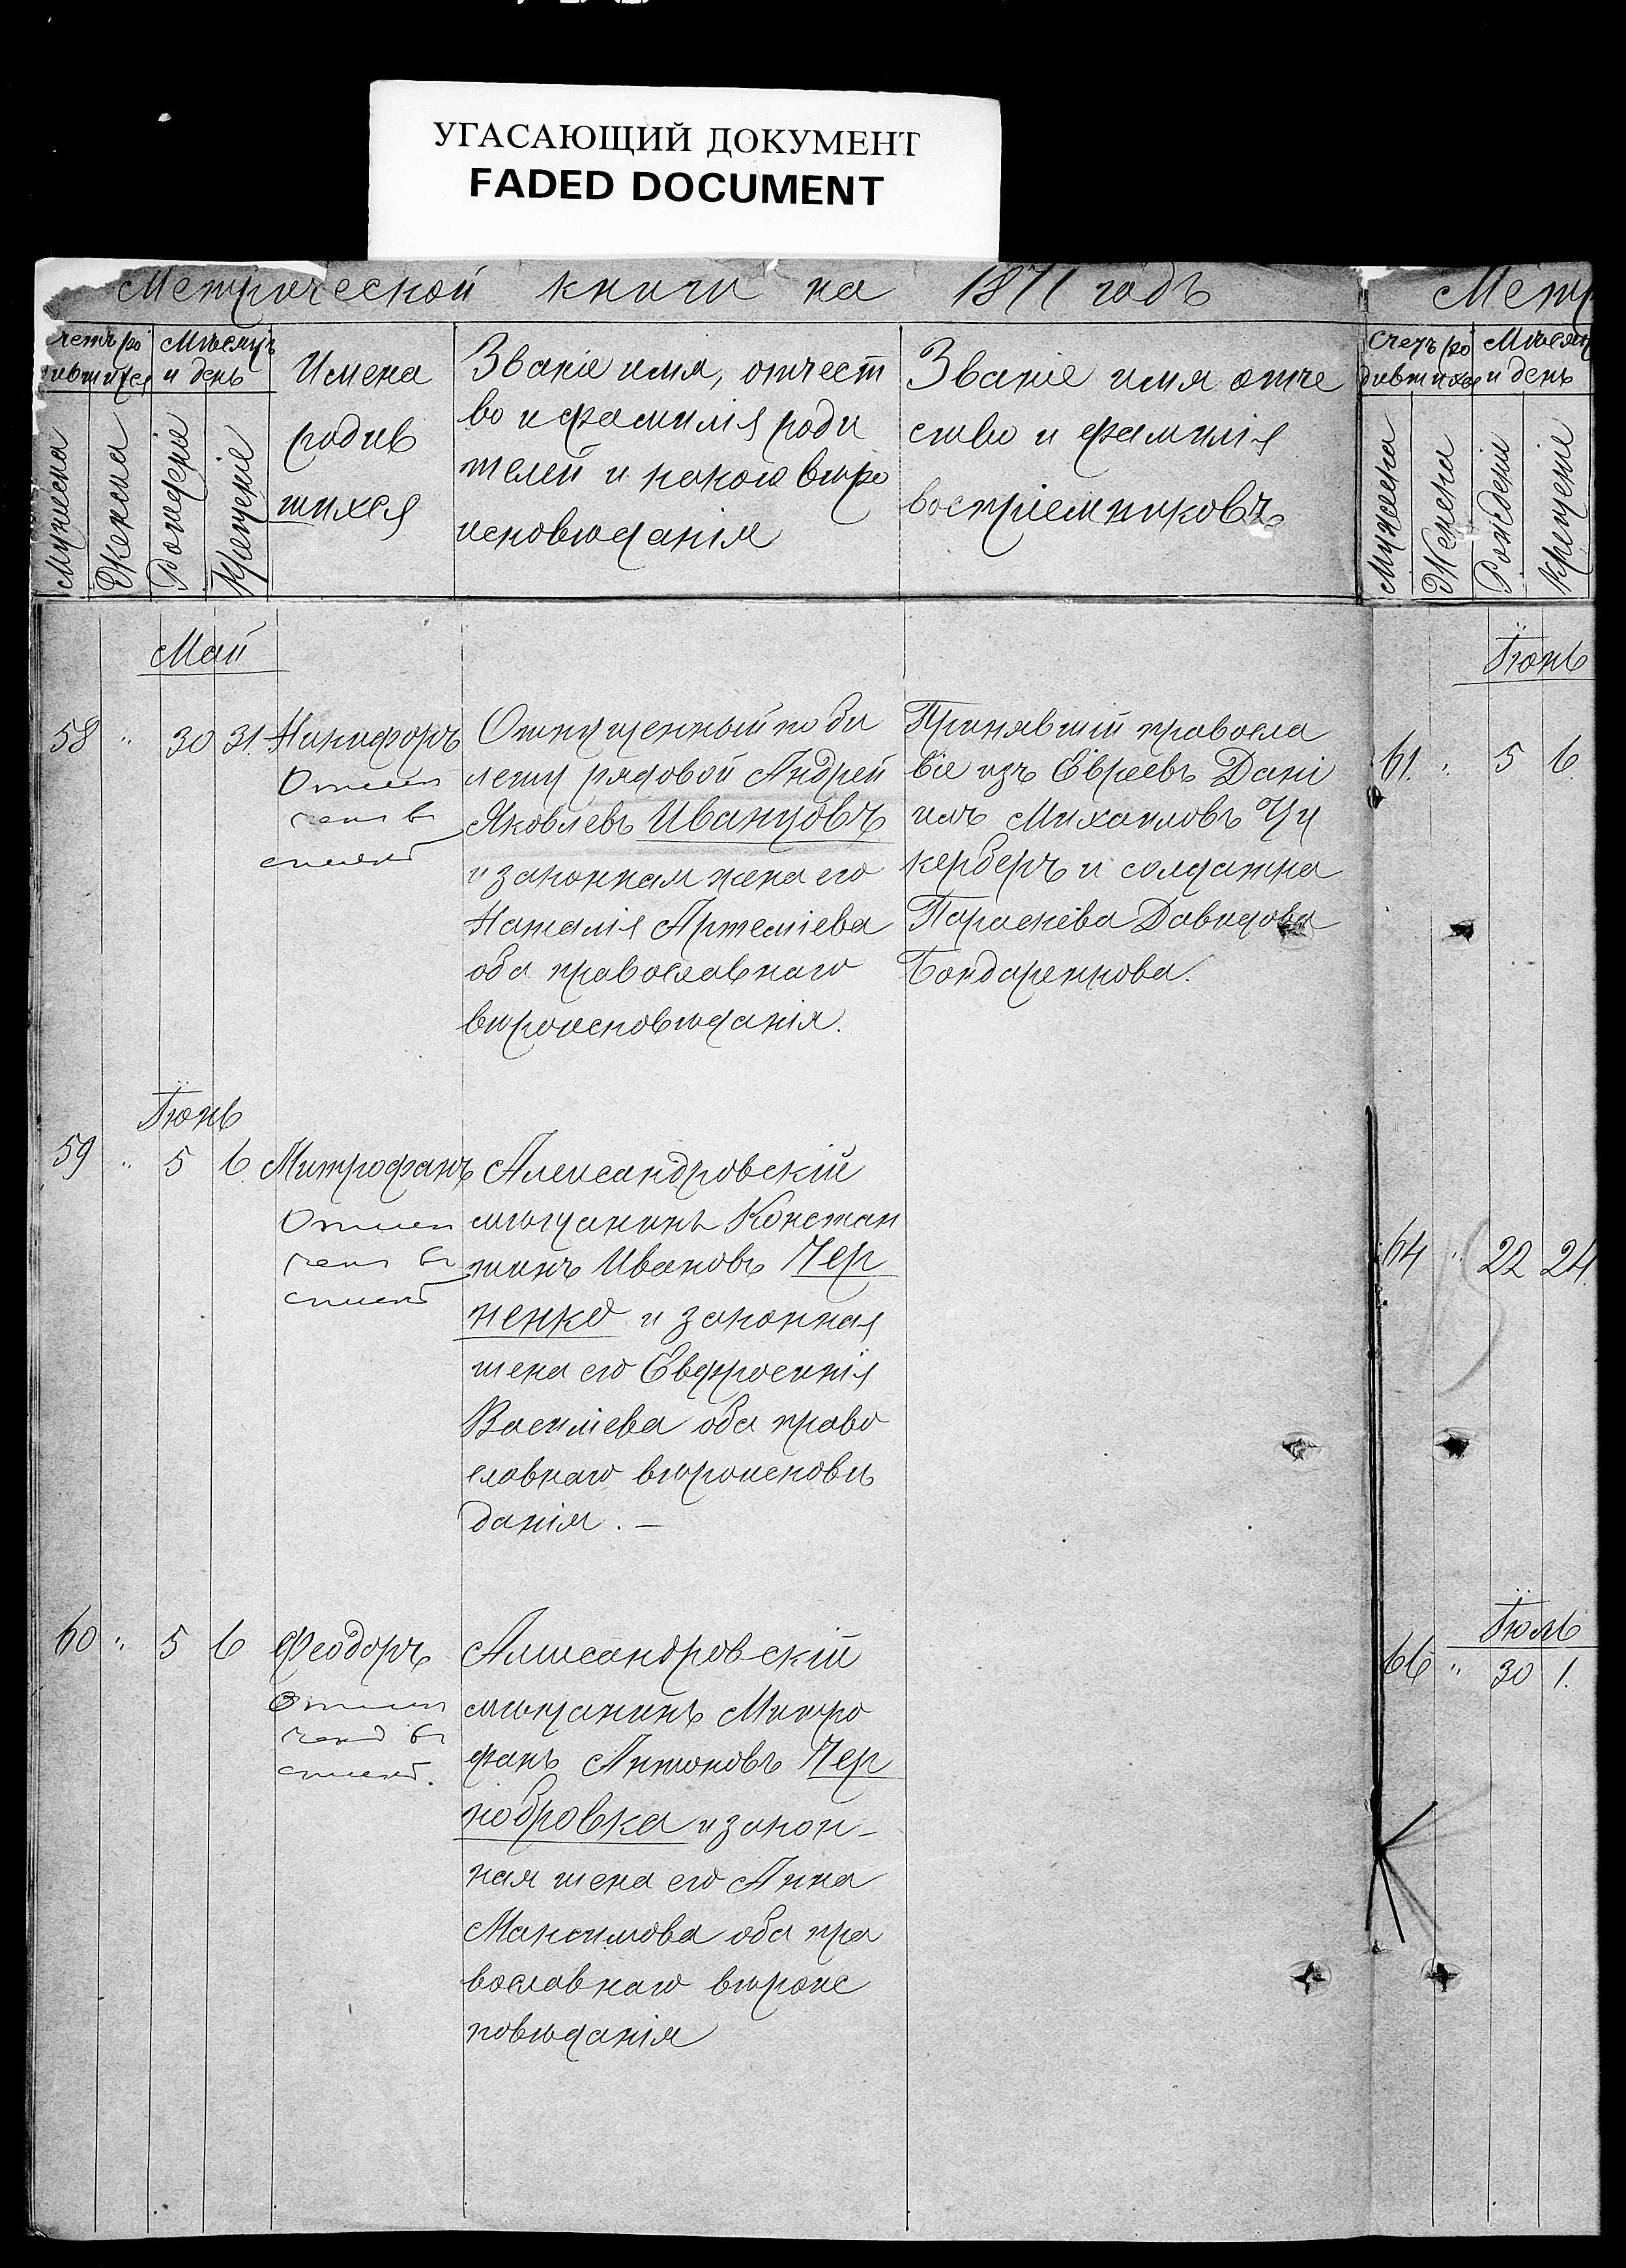 УГАСАЮЩИЙ ДОКУМЕНТ
FADED DOCUMENT
Метрической книги на 1871 годъ
Счетъ ро
дившихся
Мѣсяцъ
и день
Мужеска
Женска
Рожденіе
Крещеніе
Имена
родив
шихся
Званіе имя, отчест
во и фамилія роди
телей и какого вѣро
исповѣданія
Званіе имя отче
ство и фамилія
воспріемниковъ
Май
58 " 30 31. Никифоръ
Отмѣ
ченъ въ
спискѣ
Отпущенный по би
лету рядовой Андрей
Яковлевъ Иванцовъ
и законная жена его
Наталія Артеміева
оба православнаго
вѣроисповѣданія.
Принявшій правосла
віе изъ Евреевъ Дані
илъ Михаиловъ Цу
керберъ и солдатка
Параскева Давидова
Бондаренкова.
Іюнь
59 " 5 6. Митрофанъ
Отмѣ
ченъ въ
спискѣ
Александровскій
мѣщанинъ Констан
тинъ Ивановъ Чер
ненко и законная
жена его Евфросинія
Василіева оба право
славнаго вѣроисповѣ
данія. –
60 " 5 6 Феодоръ
Отмѣ
ченъ въ
спискѣ.
Александровскій
мѣщанинъ Митро
фанъ Антоновъ Чер
нобровка и закон-
ная жена его Анна
Максимова оба пра
вославнаго вѣроис
повѣданія
Метр
Счетъ ро
дившихся
Мѣсяц
и день
Мужеска
Женска
Рожденіе
Крещеніе
Іюнь
61. " 5 6.
64 " 22 24.
Іюль
66 " 30 1.